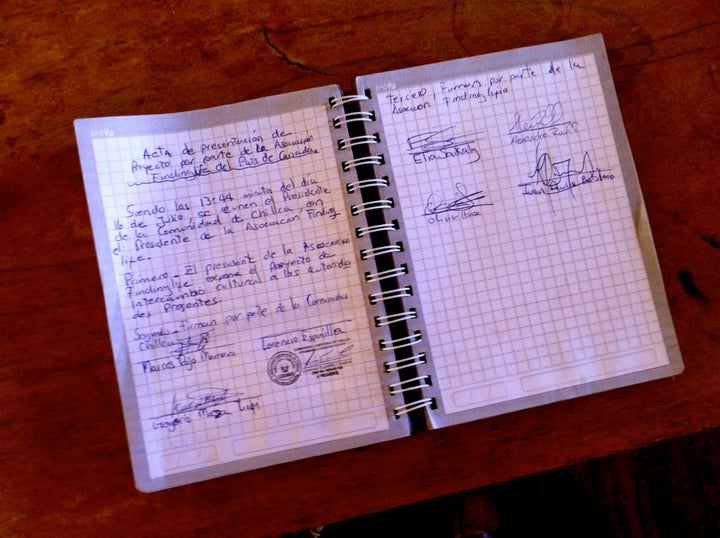 Acta de presentación de
Proyecto por parte de la Asociación
Findinglife del País de Canada.
Siendo las 13:44 minutos del dia
16 de Julio, se reunen el Presidente
de la Comunidad de Chillca, con
el Presidente de la Asociación, Finding
life.
Primero - El president de la Asociación
Findinglife expone el Proyecto de
intercambio cultural a las autorida
des Presentes.
Segundo - Firman por parte de la Comunidad
Chillca
Marcos
Lorencio
Gregorio
EL PRESIDENTE
tercero, Firman por parte de la
Asociación Findinglife
Alexandre
Ivan